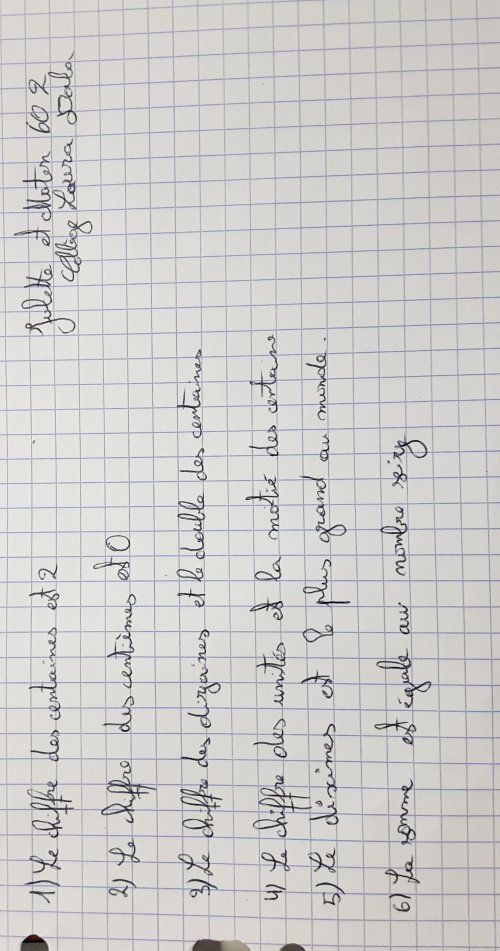 Juliette et Maten 602
Collège Laura Dala
1) Le chiffre des centaines est 2
2) Le chiffre des centièmes est 0
3) Le chiffre des dizaines et le double des centaines
4) Le chiffre des unités est la moitié des centaine
5) Le dixièmes est le plus grand au monde.
6) La somme est égale au nombre